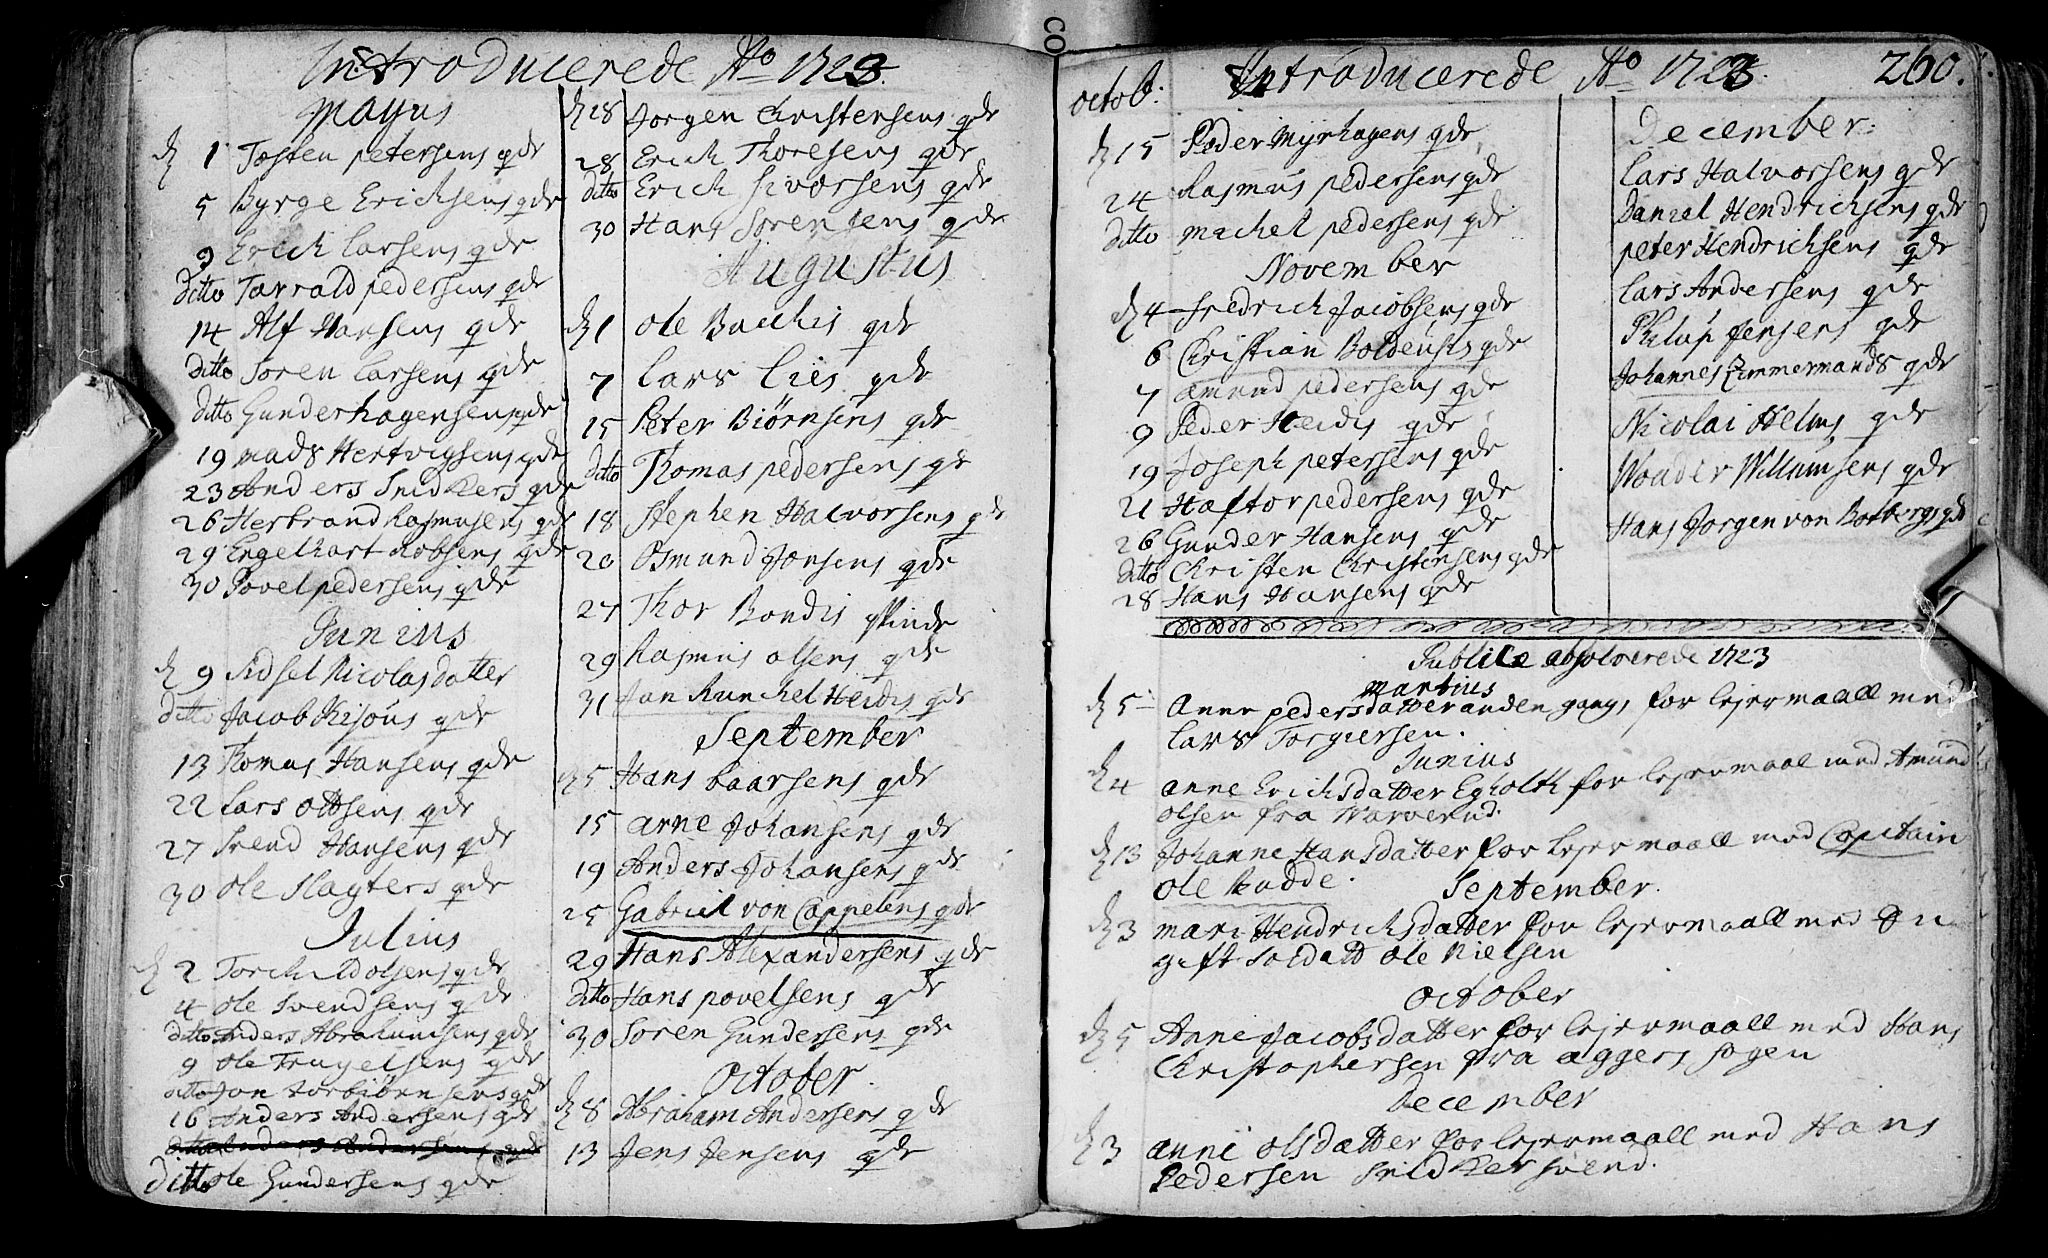 Introducerede Ao 1723.
Mayus
d 1 Tosten petersens qde
5 Byrge Erichsens qde
9 Erich Larsens qde
ditto Tarrald pedersens qde
14 Alf Hansens qde
ditto Soren Larsens qde
ditto Gunder hagensens qde
19 mads Hertvigsens qde
23 Anders Snidkers qde
26 Herbrand Rasmusens qde
29 Engelhart Robsens qde
30 Povel pedersens qde
Junius
d 9 Sidsel Nicolasdatter
ditto Jacob Kisöus qde
13 Thomas Hansens qde
22 Lars Ottsens qde
27 Svend Hansens qde
30 Ole Slagters qde
Julius
d 2 Torchild olsens qde
4 Ole Svendsens qde
ditto Anders Abrahamsens qde
9 Ole Trugelsens qde
ditto Jon Torbiörnsens qde
16 Anders Andersens qde
ditto Anders Andersens qde
ditto Ole Gundersens qde
d 18 Jorgen Christensens qde
28 Erich Thoresens qde
ditto Erich Siversens qde
30 Hans Sorensens qde
Augustus
d 1 Ole Bachis qde
7 Lars Lies qde
15 Peter Biörnsens qde
ditto Thomas pedersens qde
18 Stephen Halvorsens qde
20 Osmund Jonsens qde
27 Thor Bondis qvinde
29 Rasmus olsens qde
31 Jan Runchel Heidis qde
September
d 5 Hans baarsens qde
15 Arne Johansens qde
19 Anders Johansens qde
25 Gabriel von Cappelens qde
29 Hans Alexandersens qde
ditto Hans povelsens qde
30 Soren Gundersens qde
October.
d 8 Abraham Andersens qde
13 Jens Jensens qde
octob: Introducerede Ao 1723. 260.
d 15 Peder Myrhagens qde
24 Rasmus pedersens qde
ditto michel pedersens qde
November
d 4 Fredrich Jacobsens qde
6 Christian Boldensis qde
7 amund pedersens qde
9 Peder Heidis qde
19 Joseph petersens qde
21 Haftor pedersens qde
26 Gunder Hansens qde
ditto Christen Christensens qde
28 Hans Hansens qde
December:
Lars Halvorsens qde
Daniel Hendrichsens qde
peter Hendrichsens qde
Lars Andersens qde
Philip Jensens qde
Johannes Zimmermands qde
Nicolai Helms qde
Wouder Willumsens qde
Hans Jorgen von Botbergs qde
Publice absolverede 1723
martius
d 5 Anne pedersdatter anden gang, for lejermaall med
Lars Torgiersen.
Junius
d 4 anne Erichsdatter Egholth for lejermaal med Amund
olsen fra Warverud.
d 13 Johanne Hansdatter for lejermaall med Capitain
Ole Budde.
September.
d 3 mari Hendrichsdatter for lejermaall med u
gift Soldatt Ole Nielsen
October
d 5 Anne Jacobsdatter for lejermaall med Hans
Christophersen fra aggers sogen
December
d 3 anne olsdatter for lejermaall med Hans
Pedersen Snidkersvend.